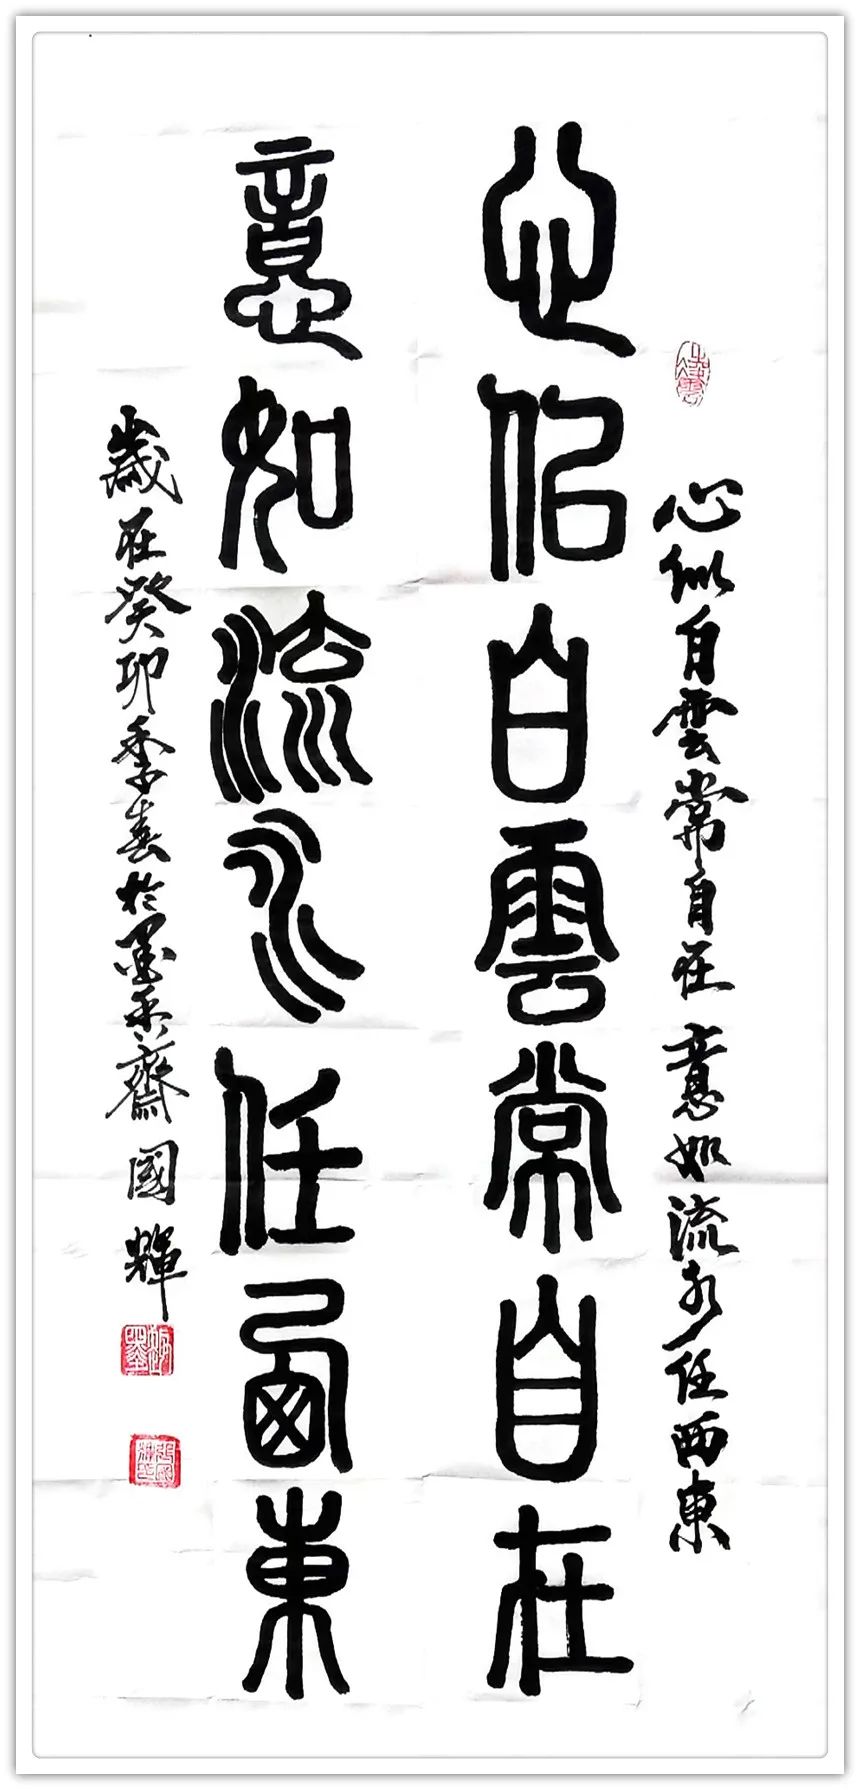 心似白雲常自在意如流水任西東
心侣白雲常自在
意如流水任西東
歲在癸卯季春於墨香齋國輝